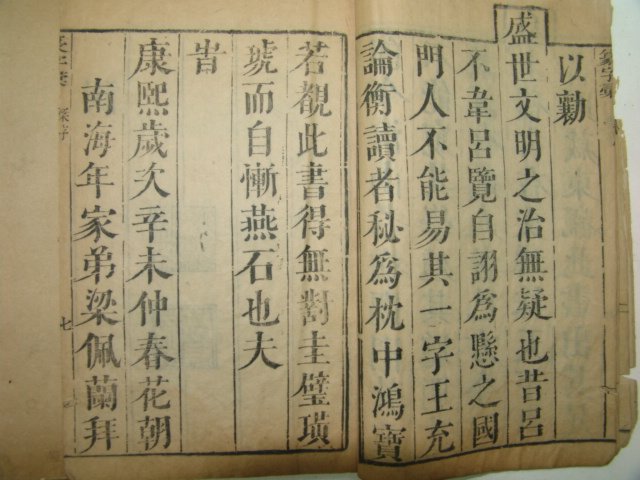 以勷
盛世文明之治無疑也昔呂
不韋呂覽自詡爲懸之國
門人不能易其一字王充
論衡讀者秘爲枕中鴻寶
若觀此書得無對圭璧璜
琥而自慚燕石也夫
旹
康熙歲次辛未仲春花朝
南海年家弟梁佩蘭拜
七